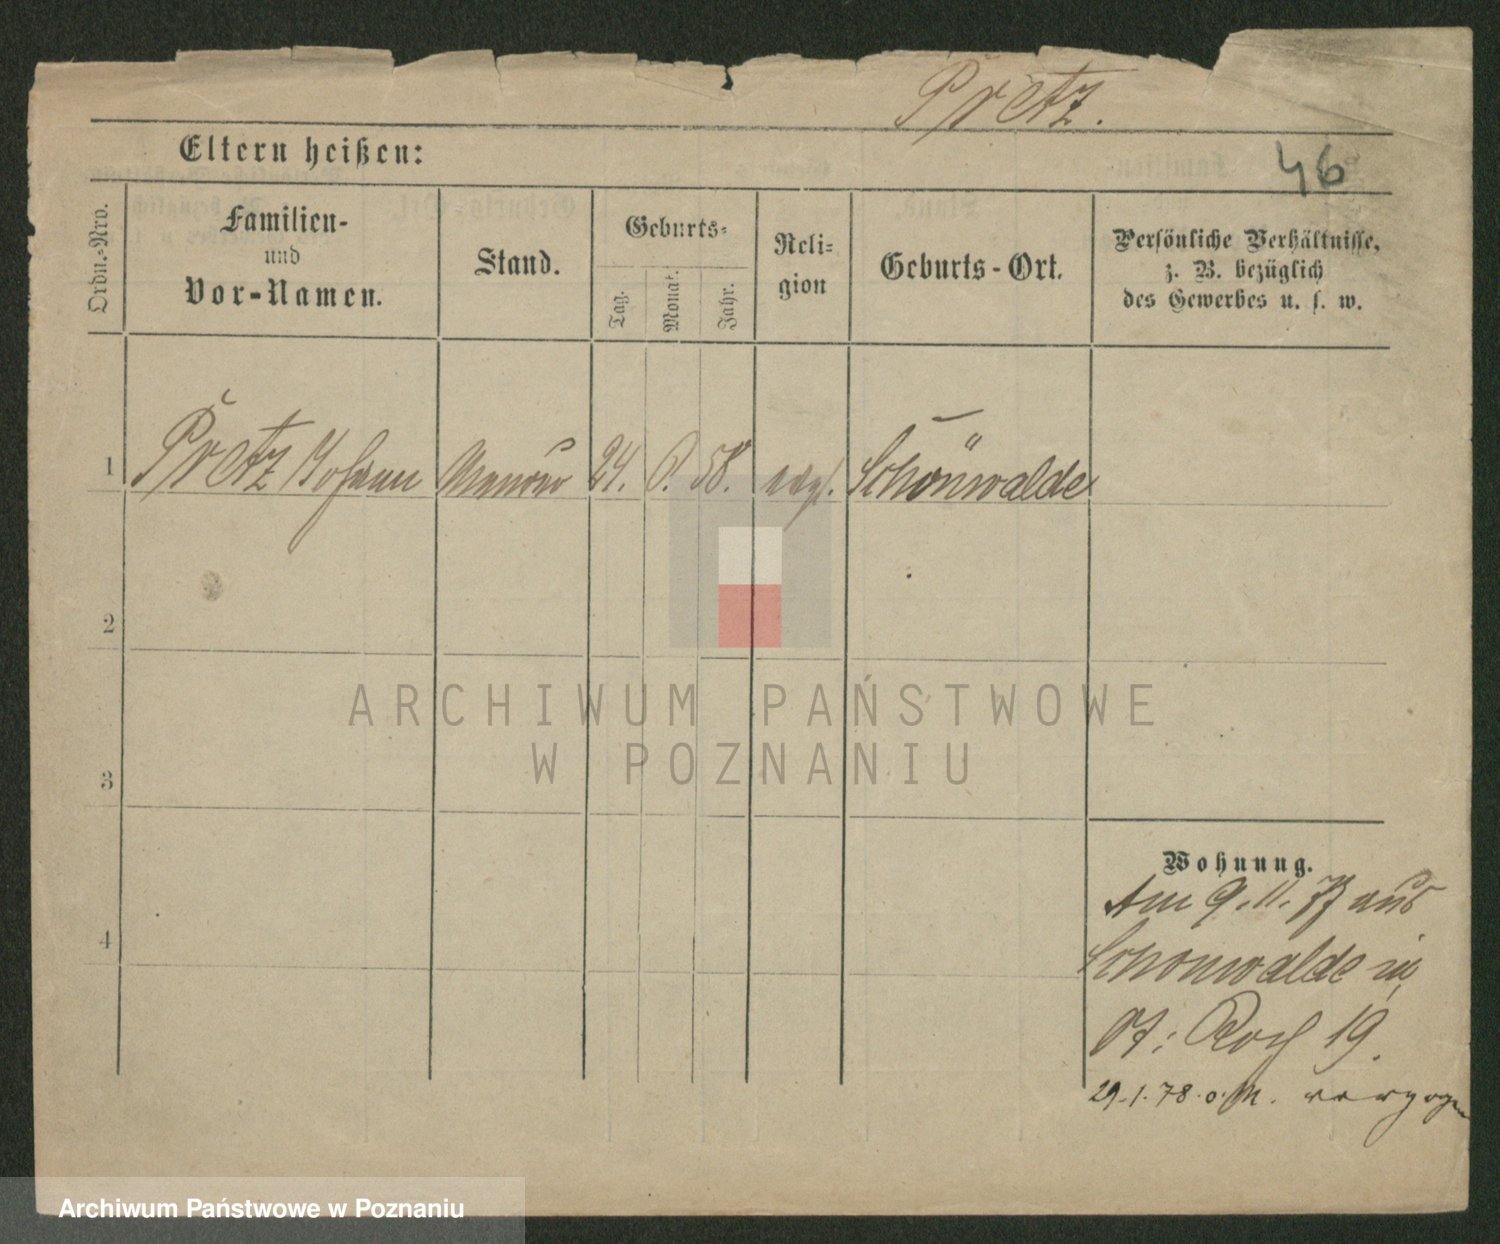 Pretz.
46
Eltern heißen:
Ordn.-Nro.
Familien-
und
Vor-Namen.
Stand.
Geburts-
Tag.
Monat.
Jahr.
Reli-
gion
Geburts-Ort.
Persönliche Verhältnisse,
z. B. bezüglich
des Gewerbes u. s. w.
1 Pretz Johann Maurer 24. 58. evgl. Schönwalde
2
3
4
Wohnung.
Am 9. 11. 77 aus
Schönwalde in
Roch 19.
29.1.78 o. M. verzogen
ARCHIWUM PAŃSTWOWE
W POZNANIU
Archiwum Państwowe w Poznaniu